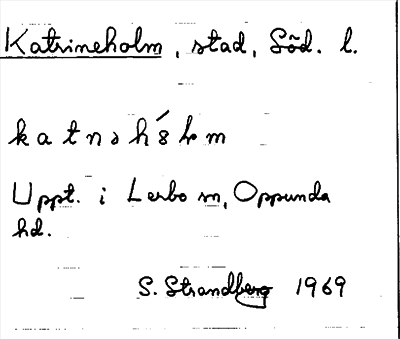 Katrineholm, stad, Söd. l.
Uppt. i Lerbo sn, Oppunda
hd.
S. Strandberg 1969